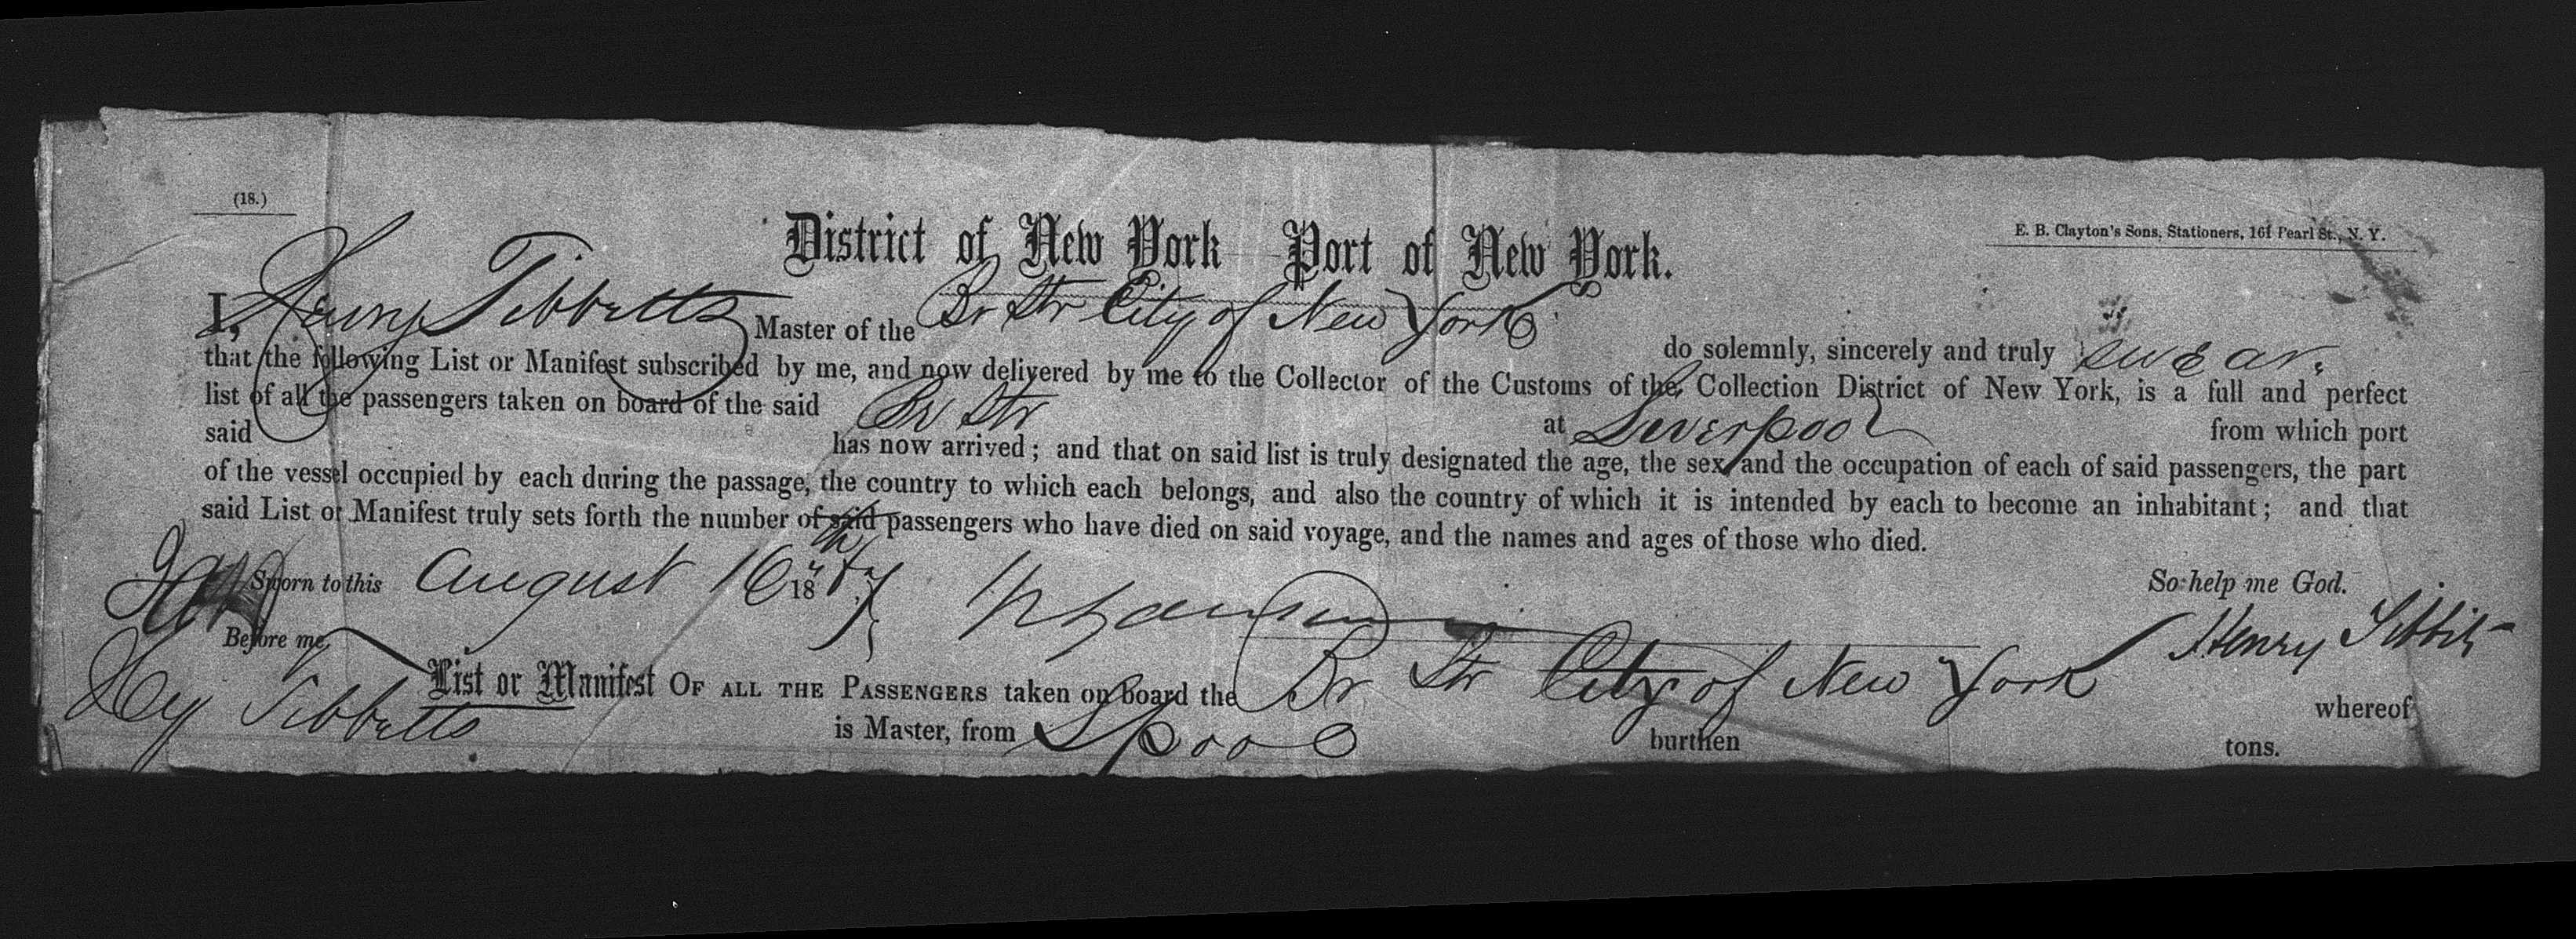 (18.)
E. B. Clayton's Sons, Stationers, 161 Pearl St., N. Y.
District of New York Port of New York.
I, Henry Tibbetts Master of the Br Str City of New York do solemnly, sincerely and truly swear.
that the following List or Manifest subscribed by me, and now delivered by me to the Collector of the Customs of the Collection District of New York, is a full and perfect
list of all the passengers taken on board of the said Br Str at Liverpool from which port
said has now arrived; and that on said list is truly designated the age, the sex and the occupation of each of said passengers, the part
of the vessel occupied by each during the passage, the country to which each belongs, and also the country of which it is intended by each to become an inhabitant; and that
said List or Manifest truly sets forth the number of said passengers who have died on said voyage, and the names and ages of those who died.
Sworn to this August 16th 18 So help me God.
Before me, Henry Tibbits
List or Manifest OF ALL THE PASSENGERS taken on board the Br Str City of New York whereof
Hy Tibbetts is Master, from Lpool burthen tons.